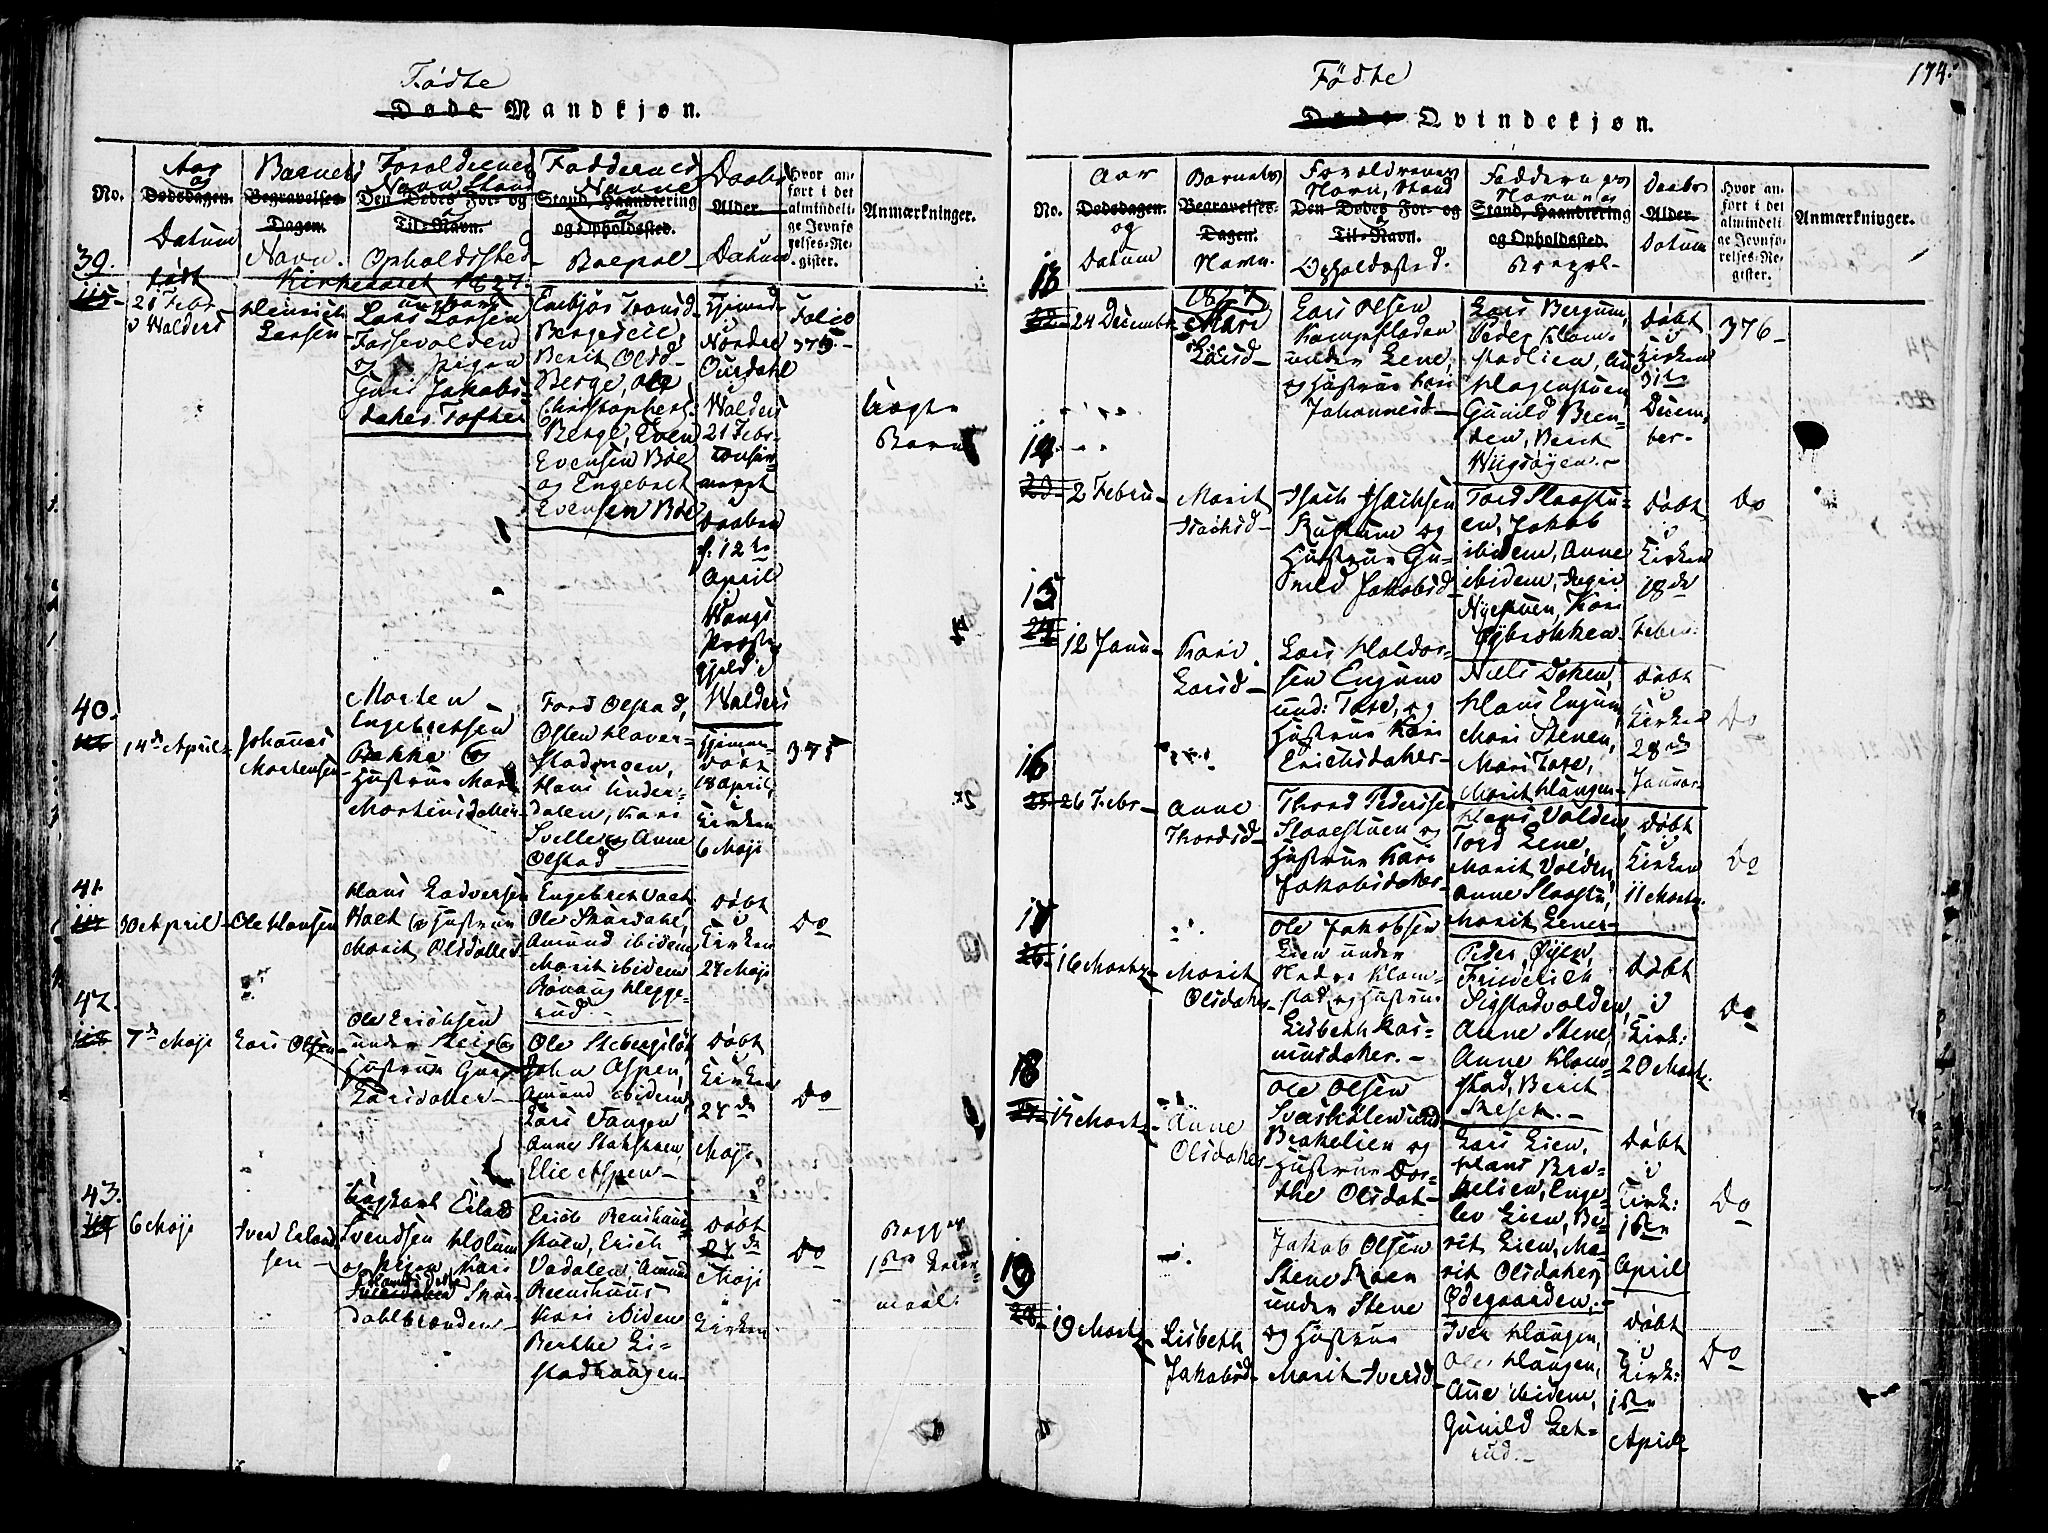 Fødte
Døde Mandkjøn.
No.
Aar
og
Dødsdagen.
Datum
Barnets
Begravelses-
Dagen.
Navn.
Forældrenes
Navn, Stand
Den Dødes For- og
Til-Navn.
og
Opholdssted
Faddernes
Navne
Stand, Haandtering
og Opholdssted.
og
Bopæl
Daabs
Alder.
Datum
Hvor an-
ført i det
almindeli-
ge Jevnfø-
relses-Re-
gister.
Anmærkninger.
Kirkeaaret 1827.
39.
født
21 Febr.
i Walders
Henrich
Larsen
Ungkarl
Lars Larsen
Fossevolden
og Pigen
Guri Jakobs-
daker Toftes
Embjør Iversd
Bergeseie,
Berit Olsd
Berge, Ole
Christophers.
Berge, Even
Evensen Bøe
og Engebret
Evensen Bøe
Hjemed
i
Nordre
Ourdahl
Walders
21 Febr.
confir-
meret
Daaben
d. 12te
April
Wangs
Præste
gjeld i
Walders
Folio
375
Uægte
Barn
40.
14de April
Johanes
Mortensen
Morten
Engebretsen
Bakke og
Hustrue Mari
Mortensdatter
Tord Olstad,
Osten Haver-
stadengen,
Hans Under-
dalen, Kari
Svelle og Anne
Olstad
hjemme
døbt
18 April,
i
Kirken
6 Maji
375
41.
30 April
Ole Hansen
Hans Ladversen
Vaet og Hustrue
Marit Olsdatter
Engebret Vaet
Ole Skurdahl,
Amund ibidem,
Marit ibidem
Rønaug Hegge-
rud
Døbt
i
Kirken
24 Maji
Do
42.
7de Maji
Lars Olsen
Ole Erichsen
under Steig og
Hustrue Guri
Larsdater
Ole Stebergsløk
John Aspen,
Amund ibidem,
Lars Vangen
Anne Stakstuen,
Elie Aspen
Døbt
i
Kirken
24de
Maji
Do
43.
6 Maji
Iver Erland-
sen
Ungkarl Erland
Svendsen Holum
og Pigen Kari
Skur-
dahlbrenden
Erich Renshuus-
stuen, Erich
Vadalen, Amund
Reenshuus
Kari ibidem
Berthe Li-
stadhaugen
Døbt
24de
Maji
i
Kirken
Do
Begges
1ste Leier-
maal.
174.
Fødte
Døde Qvindekjøn.
No.
Aar
Dødsdagen.
og
Datum
Barnets
Begravelses-
Dagen.
Navn.
Forældrenes
Navn, Stand
Den Dødes For- og
Til-Navn.
og
Opholdssted.
Faddernes
Navne
Stand, Haandtering
og Opholdssted.
Bopæl
Daabs
Alder.
Datum
Hvor an-
ført i det
almindeli-
ge Jevnfø-
relses-Re-
gister.
Anmærkninger.
1827
13
24 Decembr
Mari
Larsd
Lars Olsen
Kampesladen
under Lene,
og Hustrue Kari
Johannesd
Lars Bergum,
Peder Klom-
stadlien, Ane
Hagenstuen
Gunild Bren-
den, Berit
Wiigsøyen.
Døbt
i
Kirken
31te
Decem-
ber
376
14
2 Febru
Marit
Isachsd
Isach Isachsen
Rustum og
Hustrue Gu-
nild Jakobsd
Tord Slaastu-
en, Jakob
ibidem, Anne
ibidem, Ingri
Nystuen, Kari
Nybrokken
Døbt
i
Kirken
18de
Febru:
Do
15
12 Janu
Kari
Larsd
Lars Haldor-
sen Engum
und: Tore, og
Hustrue Kari
Erichsdater
Niels Doken,
Hans Engum,
Mari Stenen,
Mari Tore,
Marit Haugen
Døbt
i
Kirken
28de
Januar
Do
16
26 Febr
Anne
Thordsd
Thord Pedersen
Slaaestuen og
Hustrue Kari
Jakobsdater
Hans Volden,
Tord Lene,
Marit Volden,
Anne Slaastu,
Marit Lener
Døbt
i
Kirken
11 Marty.
Do
17
16 Marty
Marit
Olsdater
Ole Jakobsen
Lien under
Nedre Klom-
stad og Hustrue
Lisbeth Ras-
musdater.
Peder Øyen,
Friederich
Sigstadvolden,
Anne Stene,
Anne Klom-
stad, Berit
Døbt
i
Kirk:
20 Marty.
Do
18
15 Marty
Anne
Olsdater
Ole Olsen
Svartholen und
Brekelien og
Hustrue Dor-
the Olsdat
Lars Lien,
Hans Bre-
kelien, Enge-
lev Lien, Be-
rit Lien, Ma-
rit Olsdater
Ødegaarden.
Døbt
i
Kirk:
1ste
April
Do
19
19 Marty
Lisbeth
Jakobsd
Jakob Olsen
Stene Roen
under Stene
og Hustrue
Marit Iversd
Iver Haugen,
Ole Haugen,
Ane ibidem,
Gunild Lek-
rud.
Døbt
i
Kirk:
1ste
April
Do